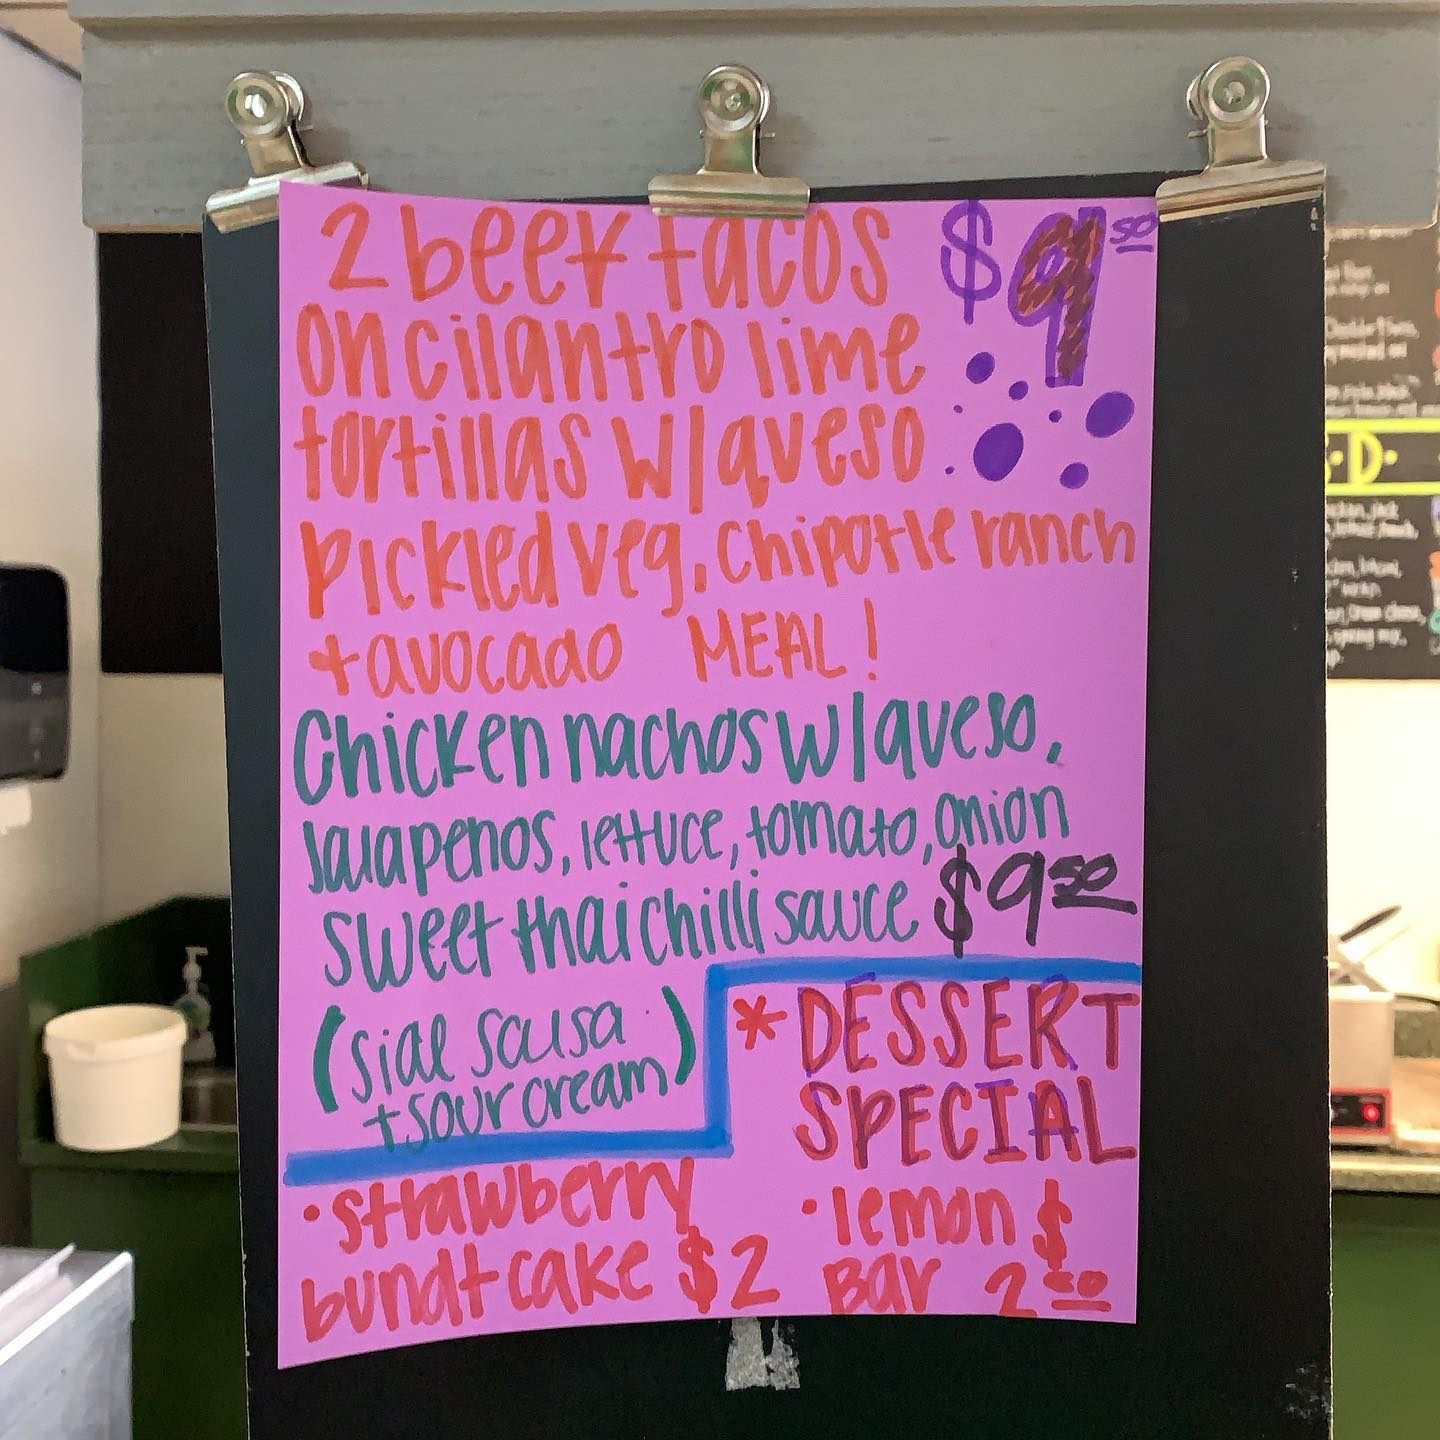 2 beef tacos $9 50
on cilantro lime
tortillas w/queso
pickled veg, chipotle ranch
+ avocado MEAL!
Chicken nachos w/queso,
Jalapenos, lettuce, tomato, onion
sweet thai chilli sauce $9 50
(side salsa
+ sour cream)
* DESSERT
SPECIAL
• strawberry
bundt cake $2
• lemon $
Bar 2 50
D.